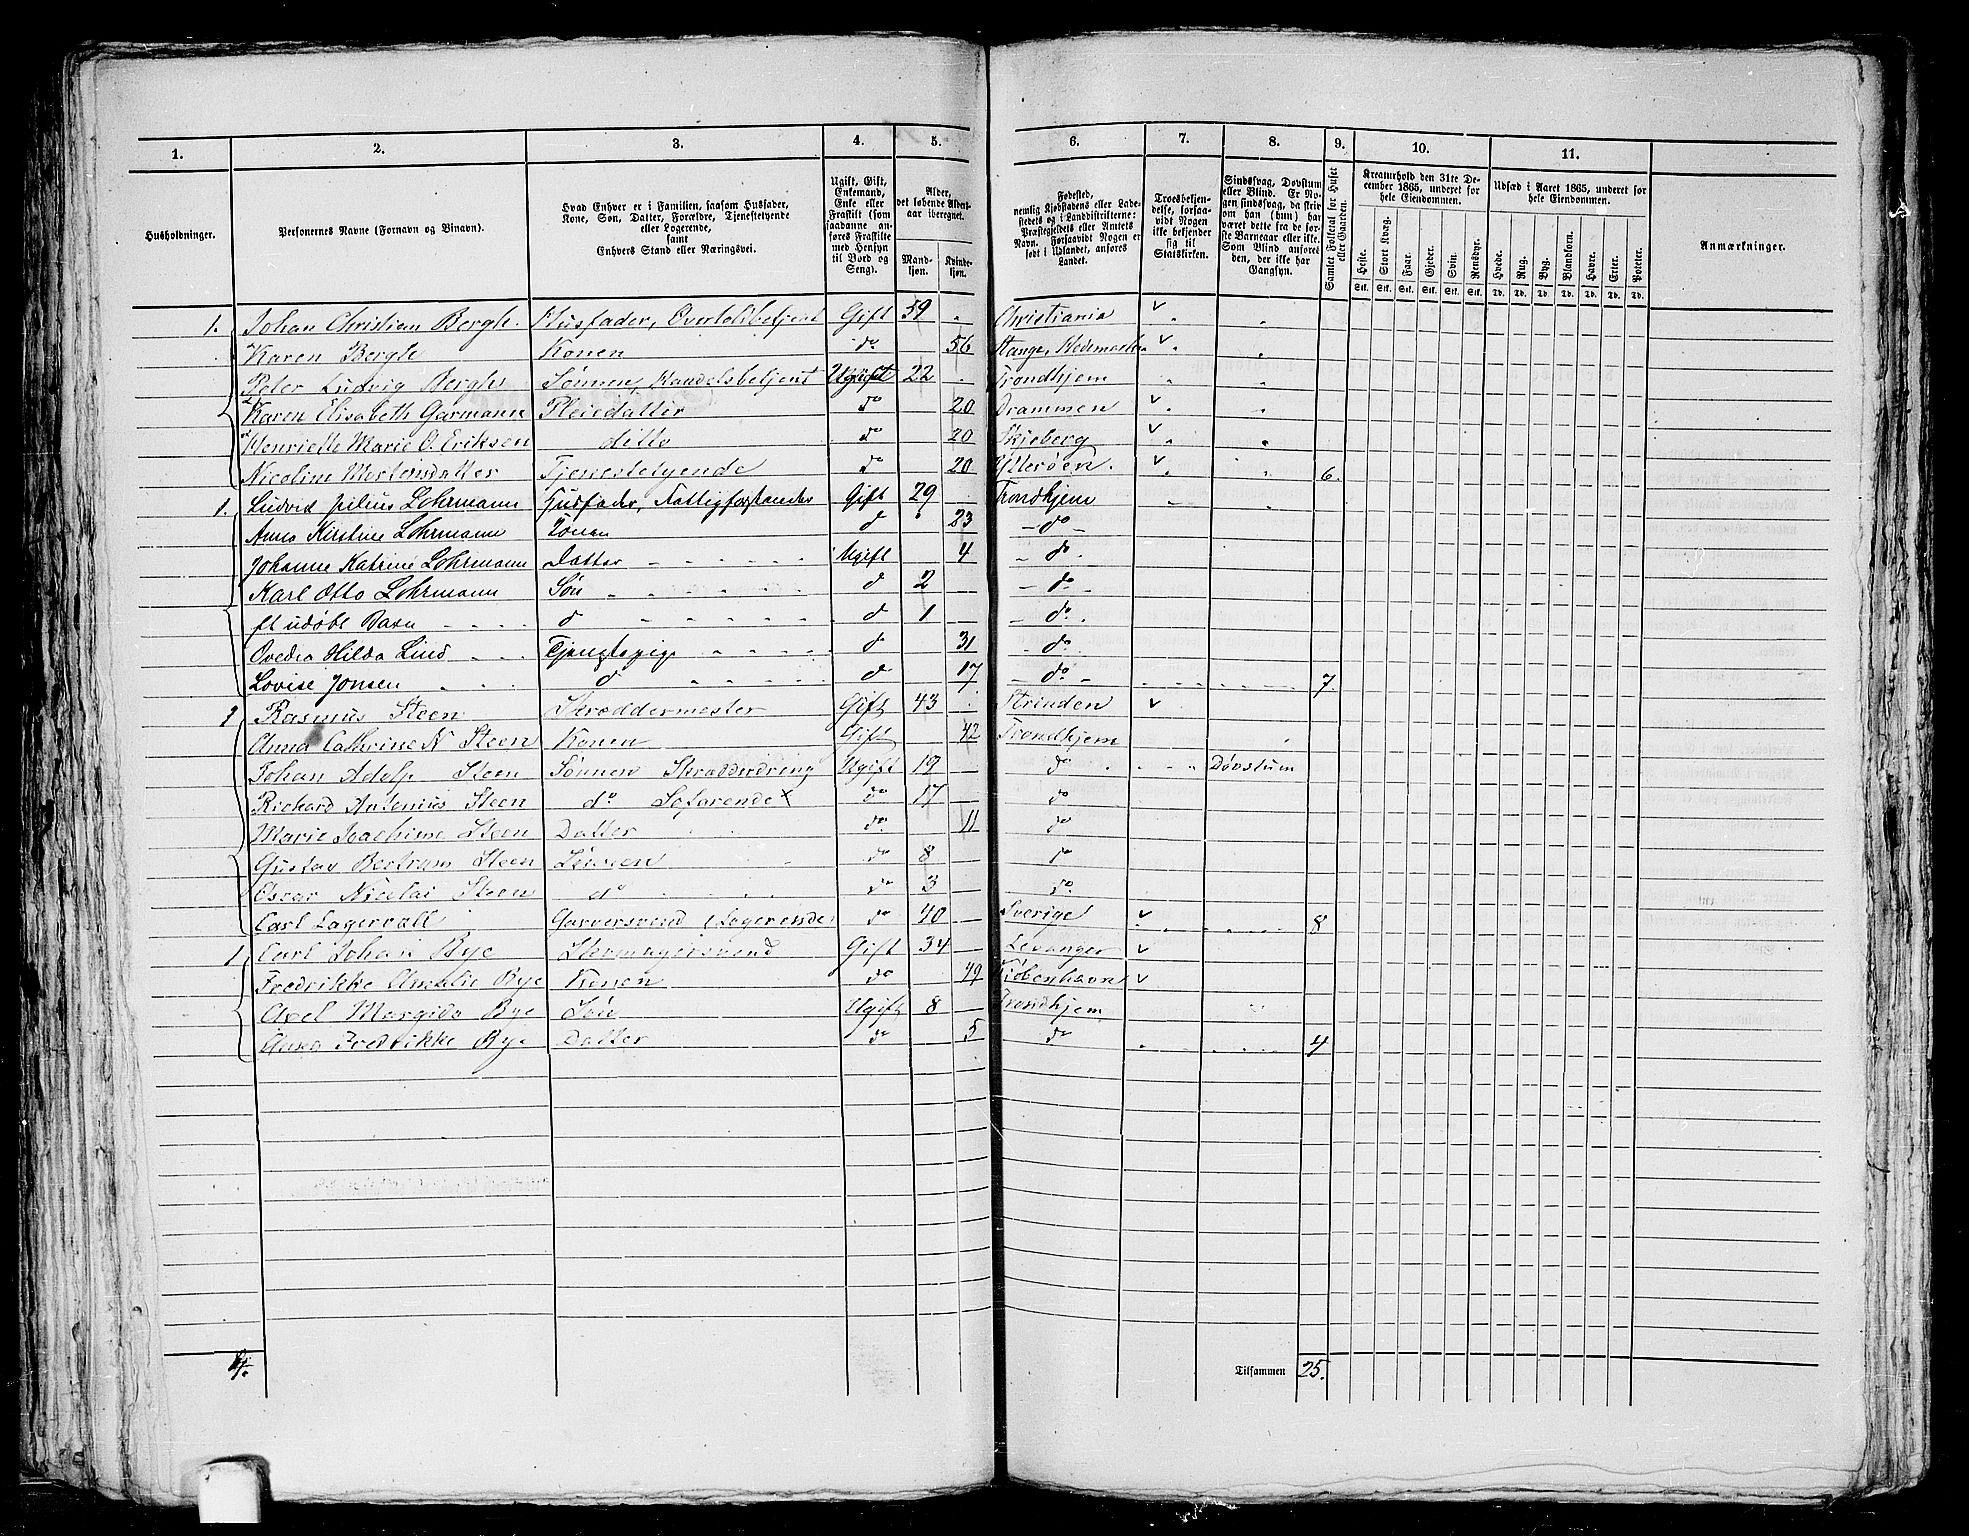 1. 2. 3. 4. 5. 6. 7. 8. 9. 10. 11.
Husholdninger.
Personernes Navne (Fornavn og Binavn).
Hvad Enhver er i Familien, saasom Husfader, Kone, Søn, Datter, Forældre, Tjenestetyende eller Logerende, samt Enhvers Stand eller Næringsvei.
Ugift, Gift, Enkemand, Enke eller Fraskilt (som saadanne anføres Fraskilte med Hensyn til Bord og Seng).
Alder, det løbende Aldersaar iberegnet.
Mandkjøn. Kvindekjøn.
Fødested, nemlig Kjøbstadens eller Ladestedets og i Landdistrikterne: Præstegjeldets eller Amtets Navn. Forsaavidt Nogen er født i Udlandet, anføres Landet.
Troesbekjendelse, forsaavidt Nogen ikke bekjender sig til Statskirken.
Sindssvag, Døvstum eller Blind. Er Nogen sindssvag, da skrives om han (hun) har været dette fra de første Barneaar eller ikke. Som Blind anføres den, der ikke har Gangsyn.
Samlet Folketal for Huset eller Gaarden.
Kreaturhold den 31te December 1865, underet for hele Eiendommen.
Heste. Stort Kvæg. Faar. Gjeder. Svin. Rensdyr.
Stk. Stk. Stk. Stk. Stk. Stk.
Udsæd i Aaret 1865, underet for hele Eiendommen.
Hvede. Rug. Byg. Blandkorn. Havre. Erter. Poteter.
Td. Td. Td. Td. Td. Td. Td.
Anmærkninger.
1. Johan Christian Bergh. Husfader, Overtoldbetjent Gift 59 Christiania
Karen Bergh Konen do 56 Stange, Hedemarken
Peter Ludvig Bergh Sønnen, Handelsbetjent Ugift 22 Trondhjem
Karen Elisabeth Garmann Pleiedatter do 20 Drammen
Henriette Marie O. Eriksen ditto do 20 Skjeberg
Nicoline Mortensdatter Tjenestetyende do 20 Ytterøen. 6.
1. Ludvid Julius Lohrmann Husfader, Fattigforstander Gift 29 Trondhjem
Anna Kirstine Lohrmann Konen d 23 do
Johanne Katrine Lohrmann Datter Ugift 4 do
Karl Otto Lohrmann Søn d 2 do
et udøbt Barn d d 1 do
Ovedia Hilda Lind Tjenstepige d 31 do
Lovise Jonsen d d 17 do 7.
1 Rasmus Steen Skræddermester Gift 43 Strinden
Anna Cathrine N Steen Konen Gift 42 Trondhjem
Johan Adolp Steen Sønnen Skrædderdreng Ugift 19 do Døvstum
Richard Antonius Steen do Søfarende x do 17 do
Marie Joachime Steen Datter do 11 do
Gustav Bertram Steen Sønnen do 8 do
Oscar Nicolai Steen do do 3 do
Carl Lagervall Garversvend (Logerende) do 40 Sverige 8
1 Carl Johan Bye Skomagersvend Gift 34 Levanger
Fredrikke Amalie Bye Konen do 49 Kiøbenhavn
Axel Margido Bye Søn Ugift 8 Trondhjem
Anna Fredrikke Bye Datter do 5 do 4
4. Tilsammen 25.